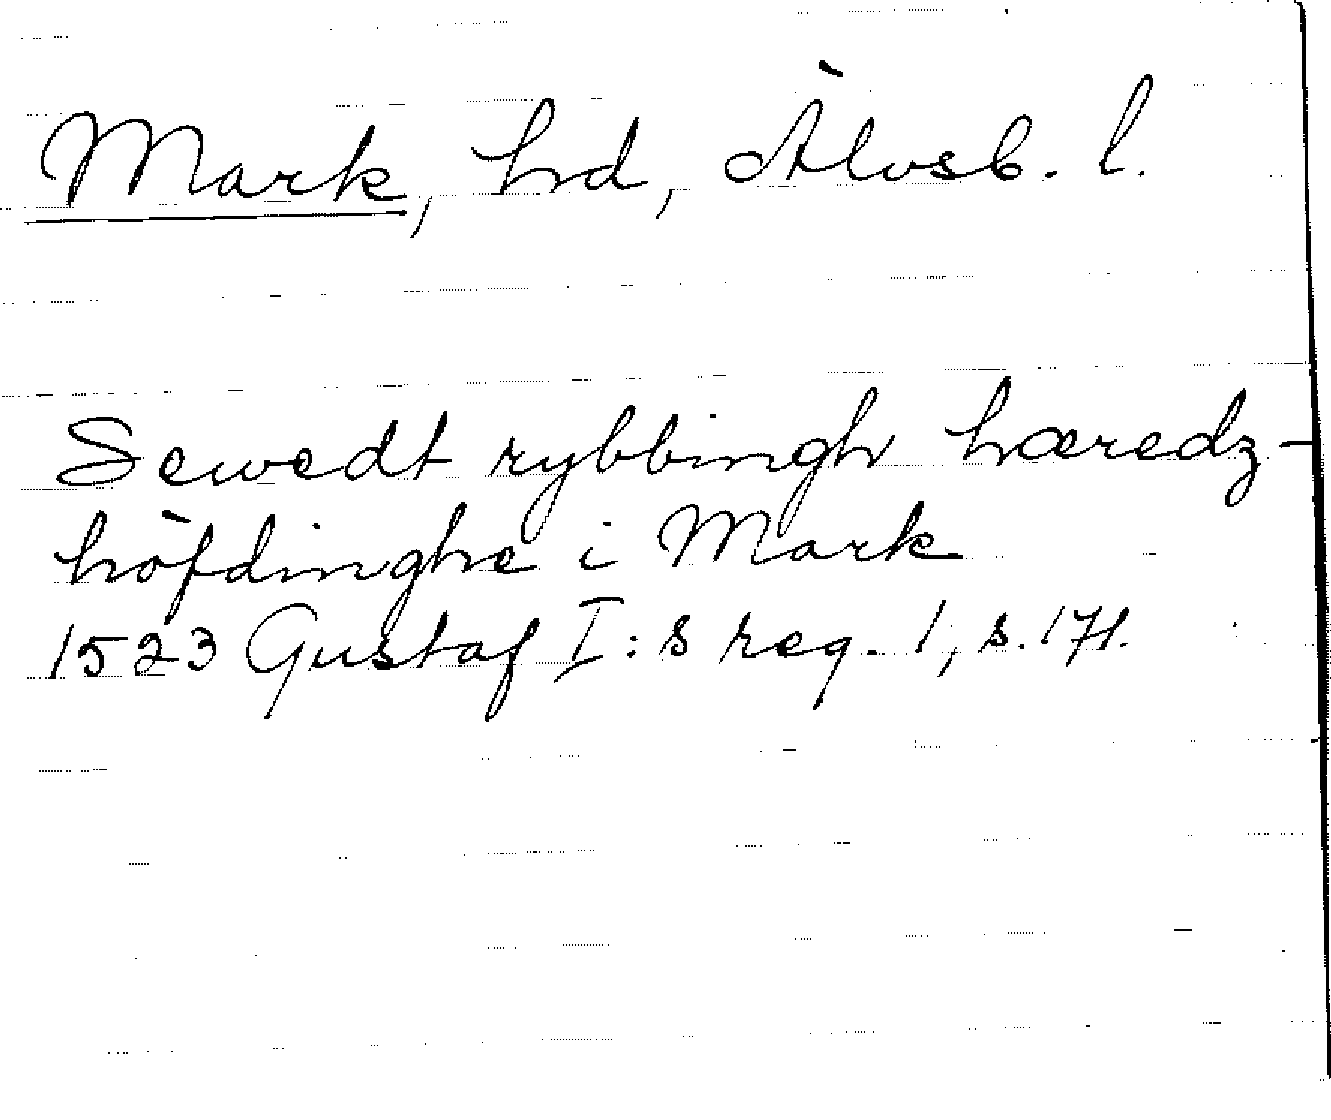 Mark, hd, Älvsb. l.
Sewedt rybbingh hæredz-
höfdinghe i Mark
1523 Gustaf I:s reg. 1, s. 171.